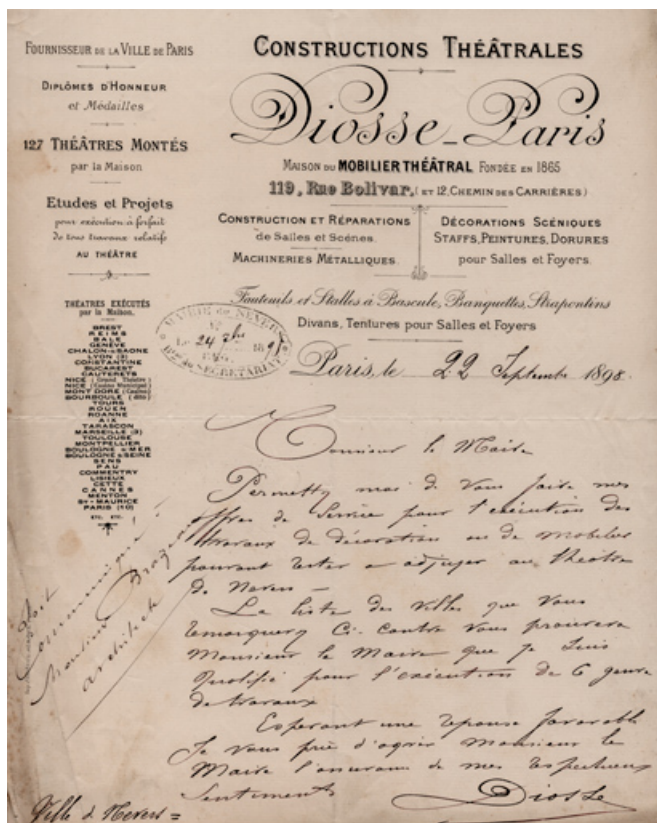 FOURNISSEUR DE LA VILLE DE PARIS
DIPLÔMES D'HONNEUR
et Médailles
127 THÉÂTRES MONTÉS
par la Maison
Etudes et Projets
pour exécution à forfait
de tous travaux relatifs
AU THÉÂTRE
THÉATRES EXÉCUTÉS
par la Maison.
BREST
REIMS
BALE
GENÈVE
CHALON-s-SAONE
LYON (3)
CONSTANTINE
BUCAREST
CAUTERETS
NICE (Grand Théâtre)
NICE (Casino Municipal)
MONT DORE (Casino)
BOURBOULE (dito)
TOURS
ROUEN
ROANNE
AIX
TARASCON
MARSEILLE (3)
TOULOUSE
MONTPELLIER
BOULOGNE s/MER
BOULOGNE s/SEINE
SENS
PAU
COMMENTRY
LISIEUX
CETTE
CANNES
MENTON
ST-MAURICE
PARIS (10)
ETC. ETC.
CONSTRUCTIONS THÉÂTRALES
Diosse-Paris
MAISON DU MOBILIER THÉÂTRAL FONDÉE EN 1865
119, Rue Bolivar, (ET 12, CHEMIN DES CARRIÈRES)
CONSTRUCTION ET RÉPARATIONS
de Salles et Scénes.
MACHINERIES MÉTALLIQUES.
DÉCORATIONS SCÉNIQUES
STAFFS, PEINTURES, DORURES
pour Salles et Foyers.
Fauteuils et Stalles à Bascule, Banquettes, Strapontins
Divans, Tentures pour Salles et Foyers
MAIRIE de NEVERS
24 7bre 1898
SECRÉTARIAT
Paris, le 22 Septembre 1898.
Monsieur le Maire
Permettez moi de Vous faire mes
offres de Service pour l'exécution des
travaux de décoration ou de mobilier
pouvant rester a adjuger au théâtre
de Nevers —
La liste des Villes que Vous
remarquerez Ci. contre Vous prouvera
Monsieur le Maire que je Suis
Qualifié pour l'exécution de ce genre
de travaux
Esperant une réponse favorable
Je Vous prie d'agréer Monsieur le
Maire l'assurance de mes respectueux
Sentiments
Diosse
Communiqué à
Monsieur
architecte
Ville de Nevers =